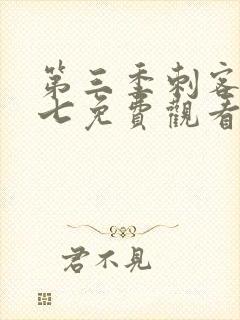 第三季刺客
七免費觀看
君不見